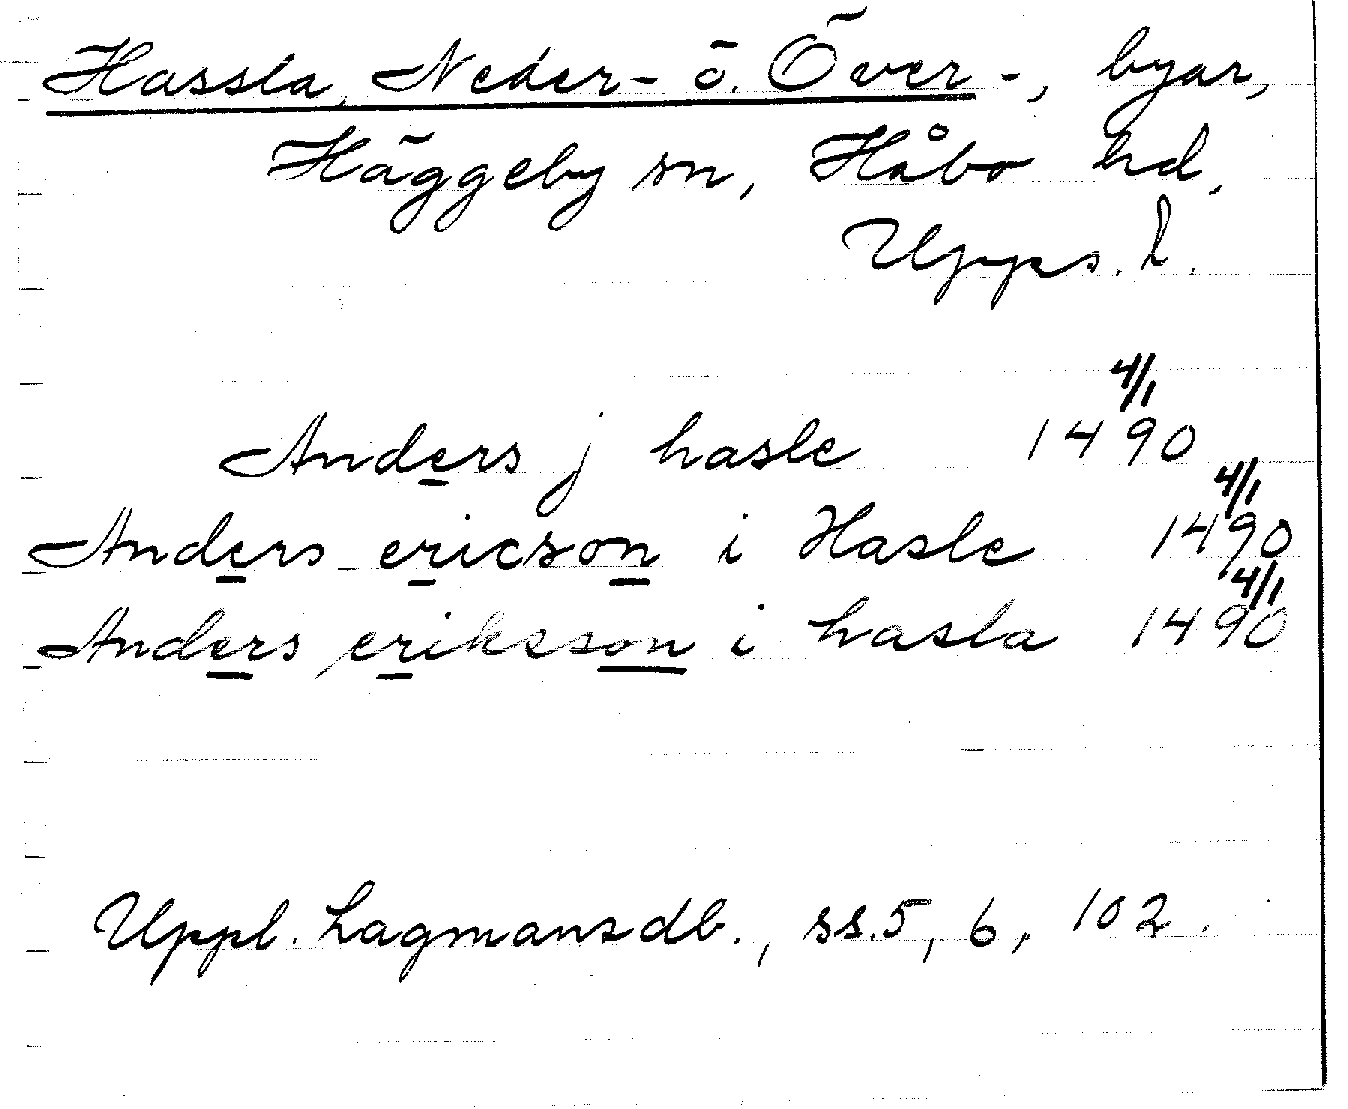 Hassla, Neder- o. Över-, byar,
Häggeby sn, Håbo hd,
Upps. l.
4/1
Anders j hasle 1490
4/1
Anders ericson i Hasle 1490
4/1
Anders eriksson i hasla 1490
Uppl. Lagmansdb., ss. 5, 6, 102.